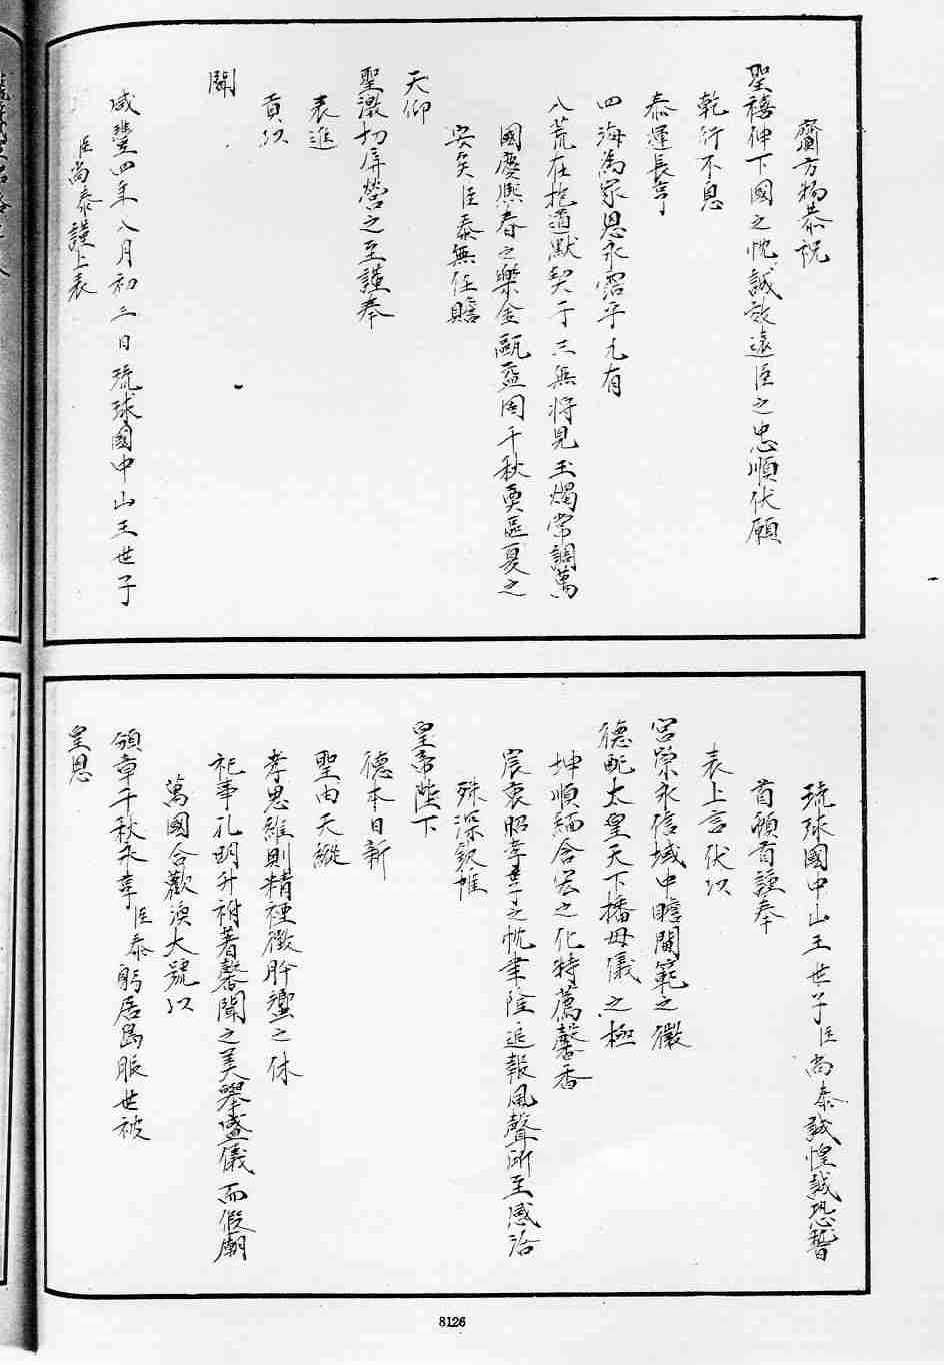 齎方物恭祝
聖禧伸下國之忱誠效遠臣之忠順伏願
乾行不息
泰運長亨
四海為家恩永霑乎凡有
八荒在抱道默契于三無將見玉燭常調萬
國慶熙春之樂金甌益固千秋奠區夏之
安矣臣泰無任瞻
天仰
聖激切屏營之至謹奉
表進
貢以
聞
咸豐四年八月初三日琉球國中山王世子
臣尚泰謹上表
琉球國中山王世子臣尚泰誠惶誠恐稽
首頓首謹奉
表上言伏以
宮闈永信域中瞻閫範之徽
德配太皇天下播母儀之極
坤順緬含宏之化特薦馨香
宸衷昭孝享之忱聿隆追報風聲所至感洽
殊深欽惟
皇帝陛下
德本日新
聖由天縱
孝思維則精禋徵肸蠁之休
祀事孔明升祔著馨聞之美舉盛儀而假廟
萬國合歡渙大號以
頒章千秋永享臣泰躬居島服世被
皇恩
8126